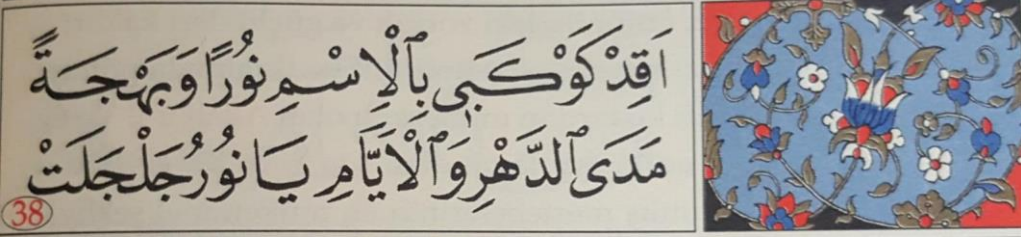 اَقِدْ كَوْكَبٖى بِٱلْاِسْمِ نُورًا وَبَهْجَةً
مَدَى ٱلدَّهْرِ وَٱلْاَيَّامِ يَا نُورُ جَلْجَلَتْ
38